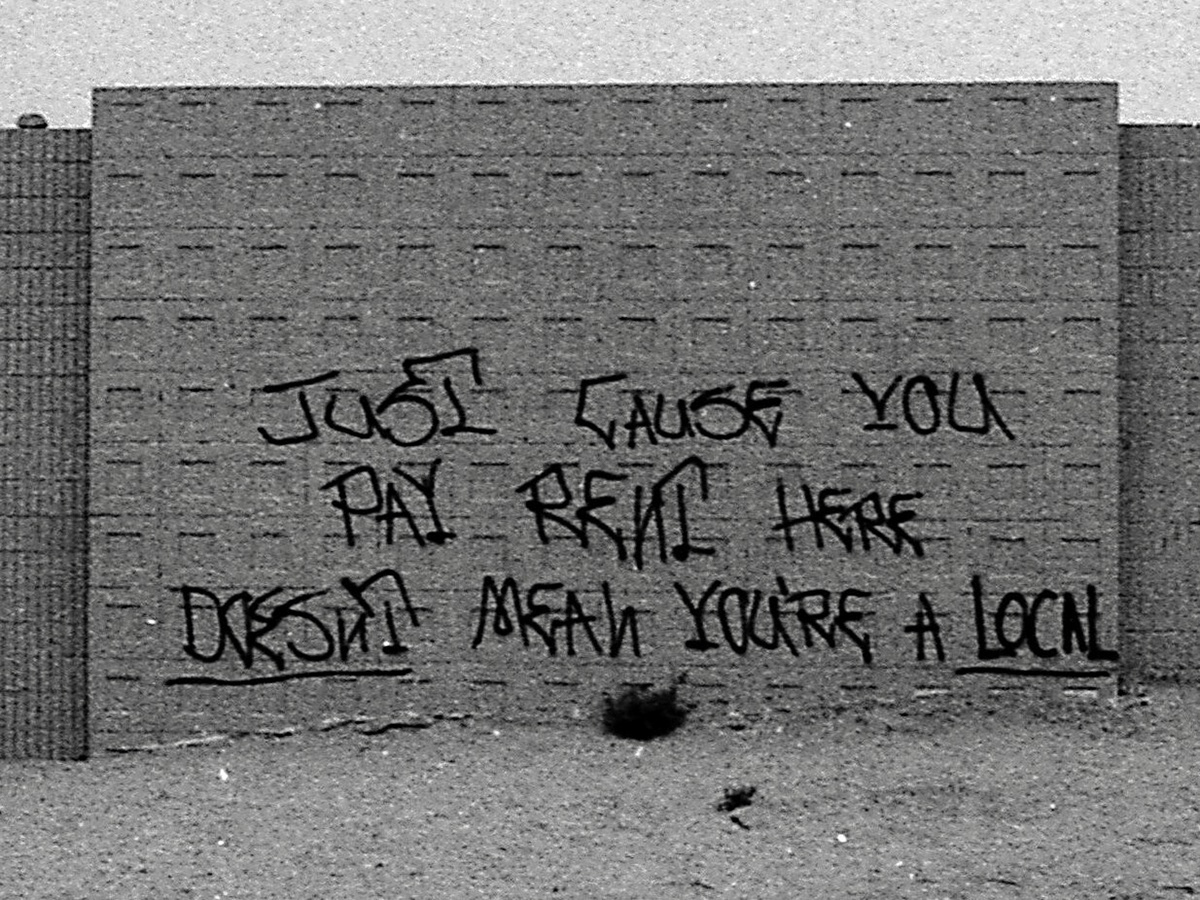 JUST CAUSE YOU
PAY RENT HERE
DOESNT MEAN YOU'RE A LOCAL